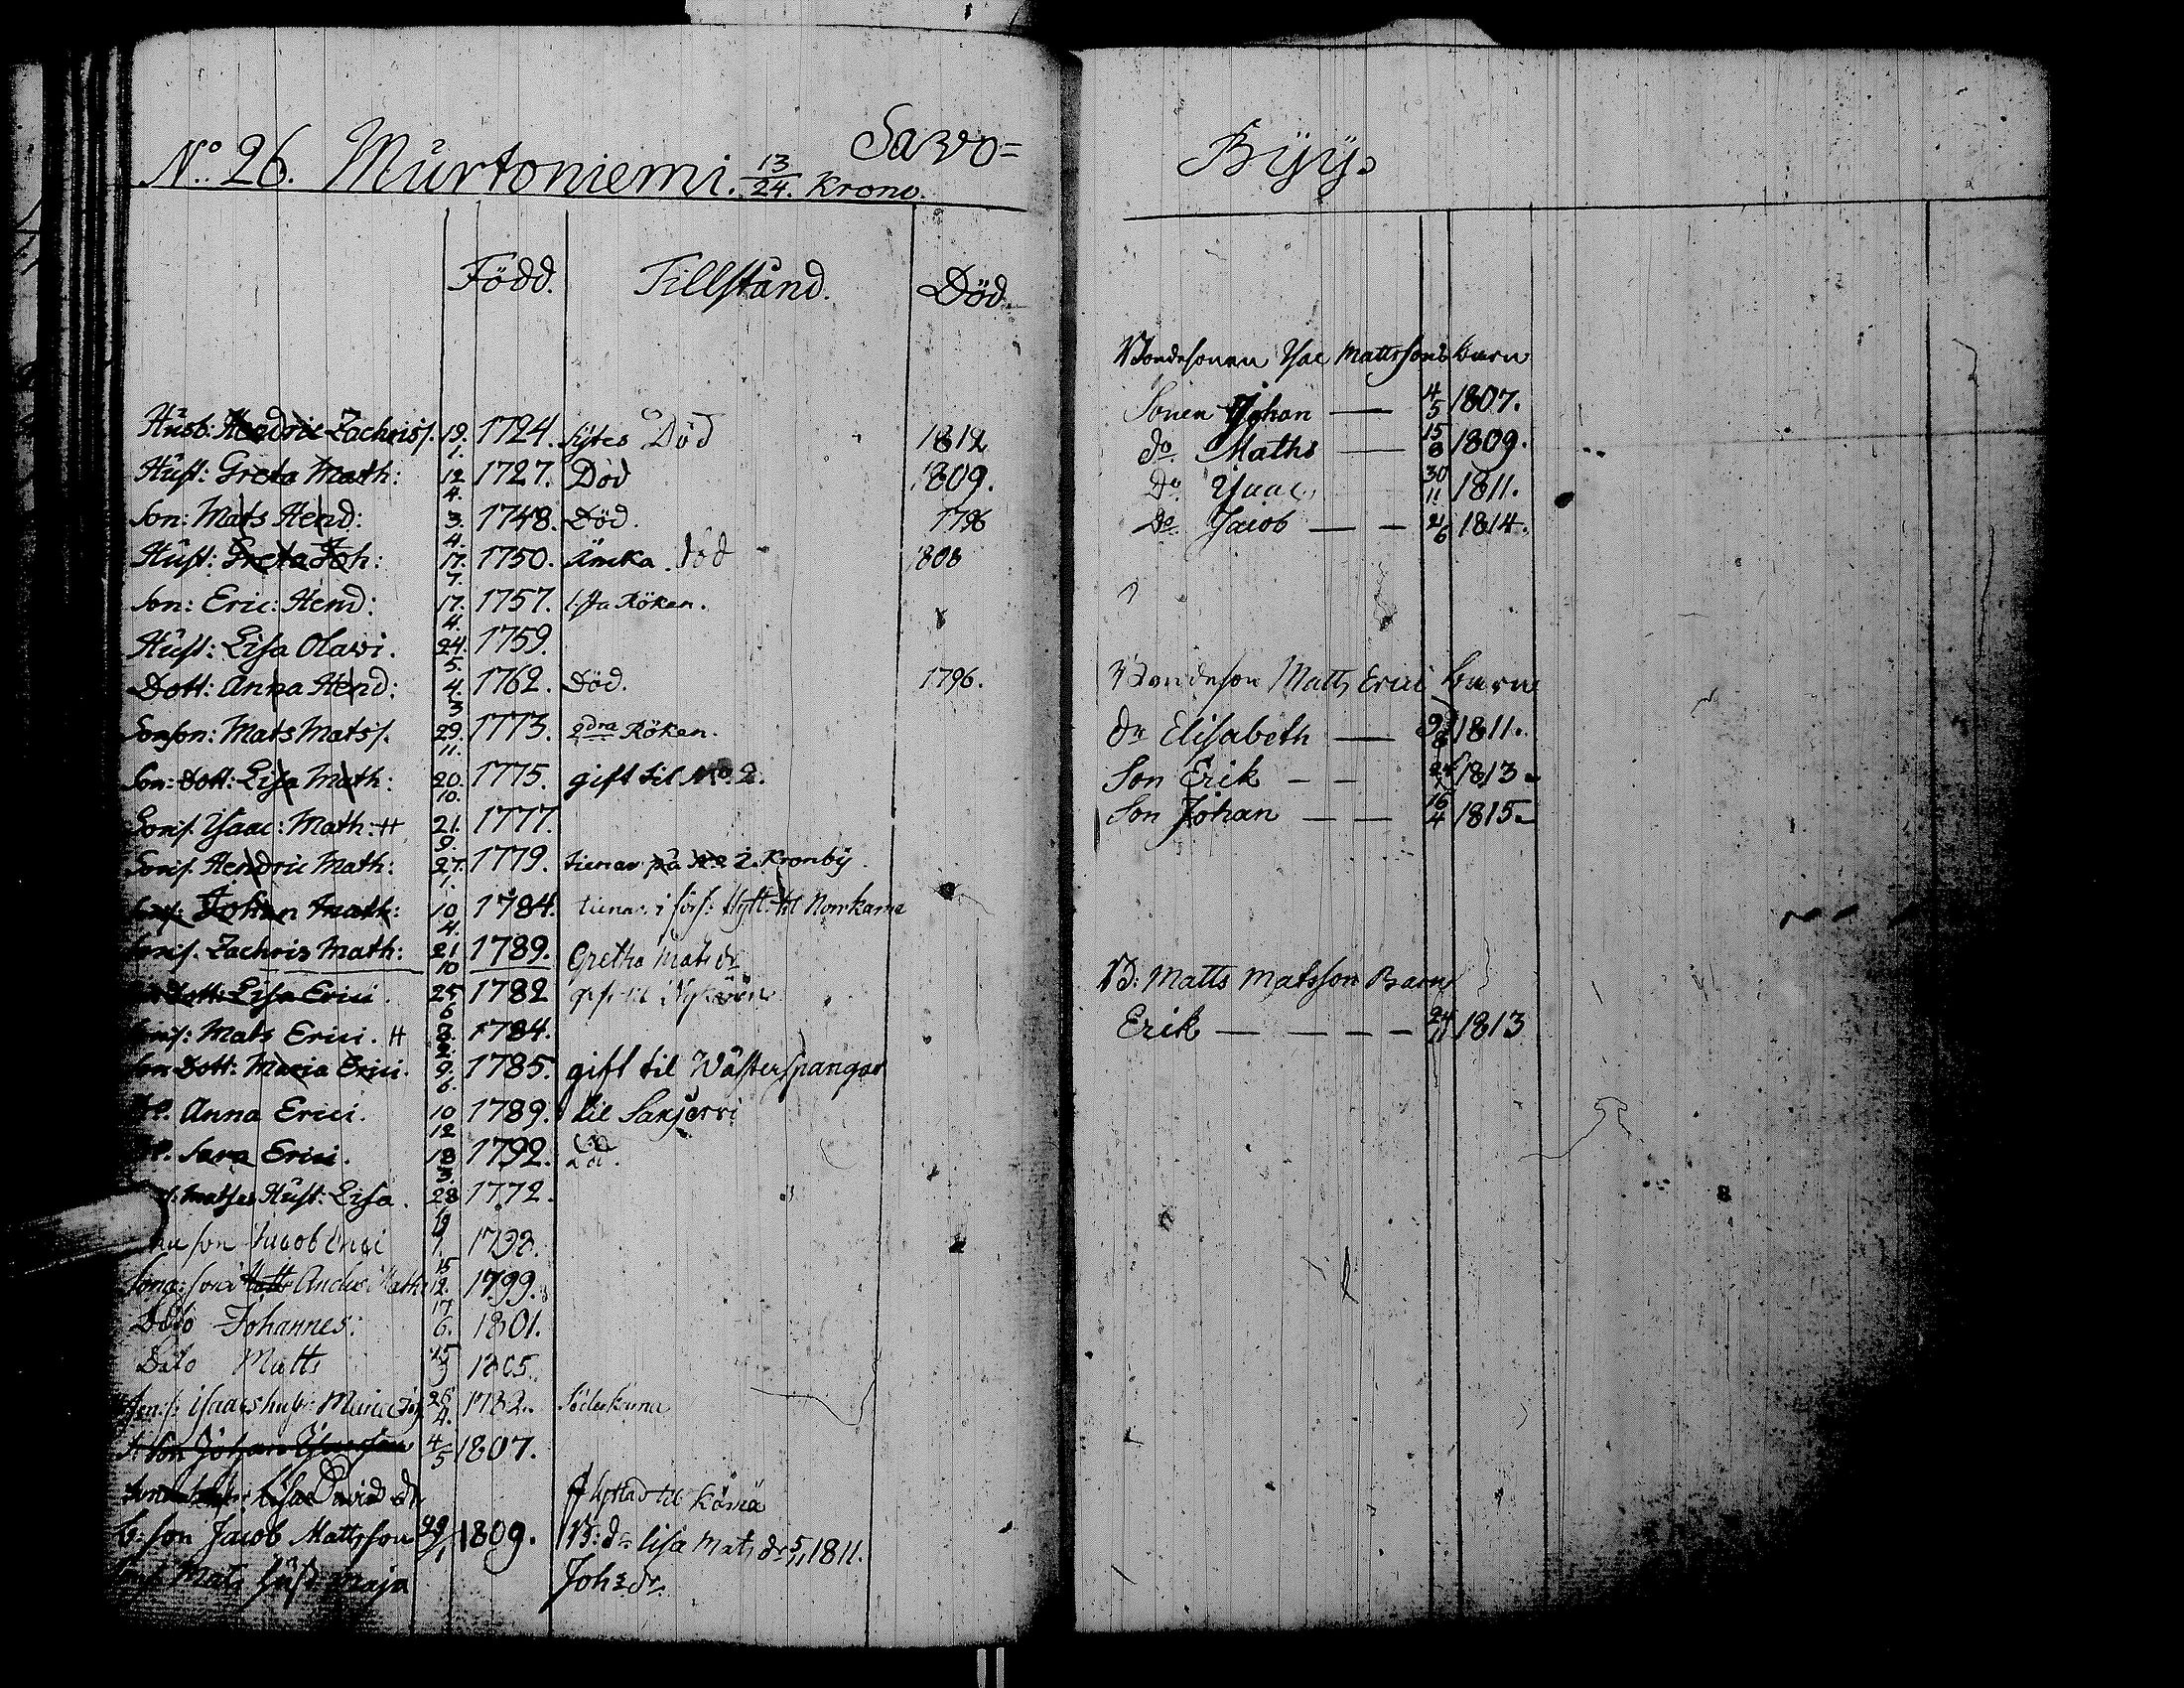 Savo=
No: 26. Murtoniemi. 13/24. Krono.
Född. Tillstånd. Död.
Husb: Hendric Zachriss. 19. 1. 1724. Sytes Död 1812
Hust: Greta Math: 12 4. 1727. Död 1809.
Son: Mats Hend: 3. 4. 1748. Död. 1796
Hust: Greta Joh: 17. 7. 1750. Änka. död 1808
Son: Eric: Hend: 17. 4. 1757. 1sta Röken.
Hust: Lisa Olavi. 24. 5. 1759.
Dott: Anna Hend: 4. 3 1762. Död. 1796.
Sonson: Mats Matss. 29. 11. 1773. 2dra Röken.
Son: Dott: Lisa Math: 20. 10. 1775. gift til No. 2.
Sons. Ysaac: Math: H 21. 9. 1777.
Sons. Hendric Math: 27. 1. 1779. tienar på No 2. Kronby
Johan Math: 10 4. 1784. tienar i til Norrkama
Sons. Zachris Math: 21 10 1789. Gretha Mats dr
Dott: Lisa Erici. 25 6 1782 til
Sons: Mats Erici. H 3. 2. 1784.
Son Dott: Maria Erici. 9. 6. 1785. gift til Wästerspangar
Anna Erici. 10 12 1789. til Sanjervi
Sara Erici. 18 3. 1792. Död.
Matses Hust: Lisa. 28 1772.
son Jacob Erici 1. 1798.
Sona: son Matts Anders Maths 15 12. 1799.
Dito Johannes. 17 6. 1801.
Dito Matts 25 1805.
Isaacs hust: Maria Joh 28 4. 1782. Söderkama
Son Johan 4/5 1807.
Lisa David dr flyttad til Kämä
B: son Jacob Mattsson 29/1 1809. B: dr lisa Mats dr 5/11 1811.
Mats hust maja Joh: dr.
Byy.
Bondesonen Isac Mattssons barn
Sonen Johan — 4/5 1807.
do Maths — 15/8 1809.
Do Ysaac, 30/11 1811.
Do Jacob — — 21/6 1814.
Bondeson Matts Erici barn
dr Elisabeth — 9/8 1811.
Son Erik — — 24/1 1813
Son Johan — — 16/4 1815
B: Matts Matsson Barn
Erik — — — — 24/11 1813